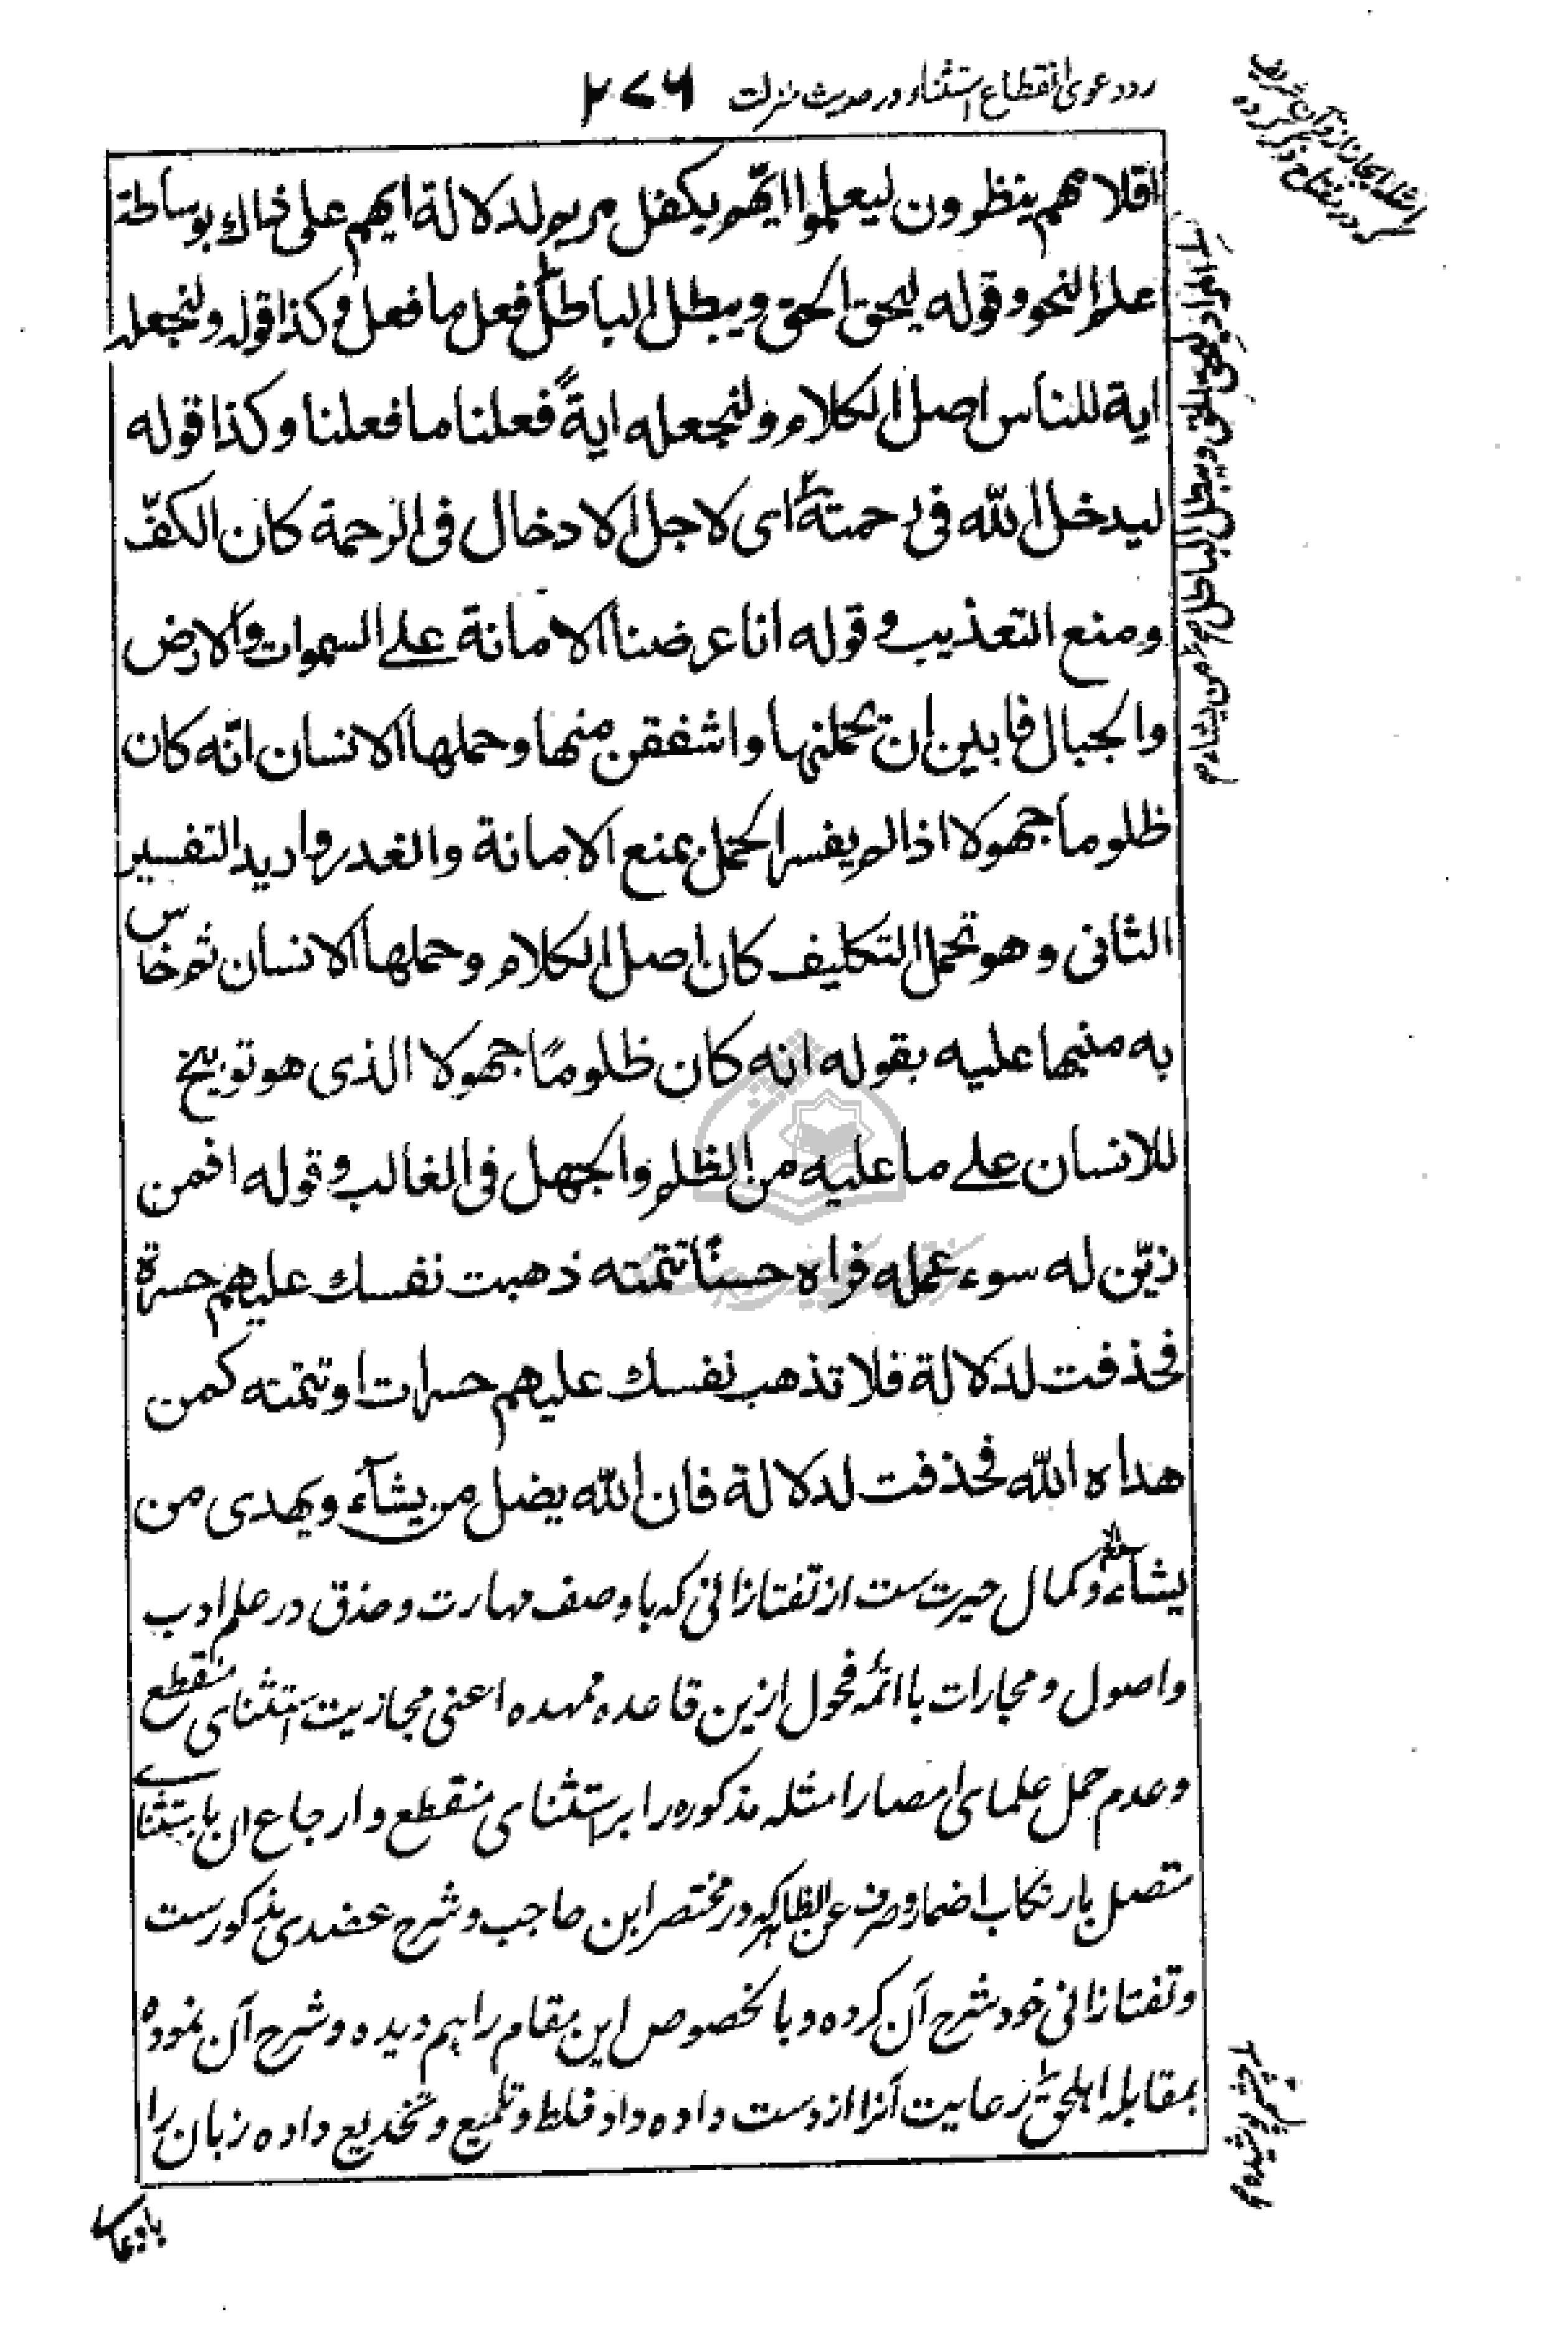 رد دعوی انقطاع استثناء در حدیث منزلت ۲۷۶
اقلامهم ينظرون ليعلموا ايّهم يكفل مريم لدلالة ايهم على ذلك بوساطة
علم النحو وقوله ليحق الحق ويبطل الباطل فعل ما فعل وكذا قوله ولنجعله
اية للناس اصل الكلام ولنجعله ايةً فعلنا ما فعلنا وكذا قوله
ليدخل الله فى رحمته اى لاجل الادخال فى الرحمة كان الكفّ
ومنع التعذيب وقوله انا عرضنا الامانة على السموات والارض
والجبال فابين ان يحملنها واشفقن منها وحملها الانسان انّه كان
ظلوما جهولا اذا لم يفسر الحمل بمنع الامانة والغدر واريد التفسير
الثانى وهو تحمل التكليف كان اصل الكلام وحملها الانسان ثم خاس
به منبها عليه بقوله انه كان ظلومًا جهولا الذى هو توبيخ
للانسان على ما عليه من الظلم والجهل فى الغالب وقوله افمن
زيّن له سوء عمله فراه حسنًا تتمته ذهبت نفسك عليهم حسرة
فحذفت لدلالة فلا تذهب نفسك عليهم حسرات او تتمته كمن
هداه الله فحذفت لدلالة فان الله يضل من يشآء ويهدى من
يشآء وکمال حیرت ست از تفتازانی که با وصف مهارت و حذق در علم ادب
واصول و مجارات با ائمّه فحول ازین قاعده ممهده اعنی مجازیت استثنای منقطع
وعدم حمل علمای امصار امثله مذکوره را بر استثنای منقطع وارجاع ان باستثنای
متصل بارتکاب اضمار وصرف عن الظاهر که در مختصر ابن حاجب وشرح عضدی مذکورست
وتفتازانی خود شرح آن کرده و بالخصوص این مقام را هم دیده وشرح آن نموده
بمقابله اهلحق رعایت آنرا از دست داده داد غلط و تلمیع و تخدیع داده زبان را